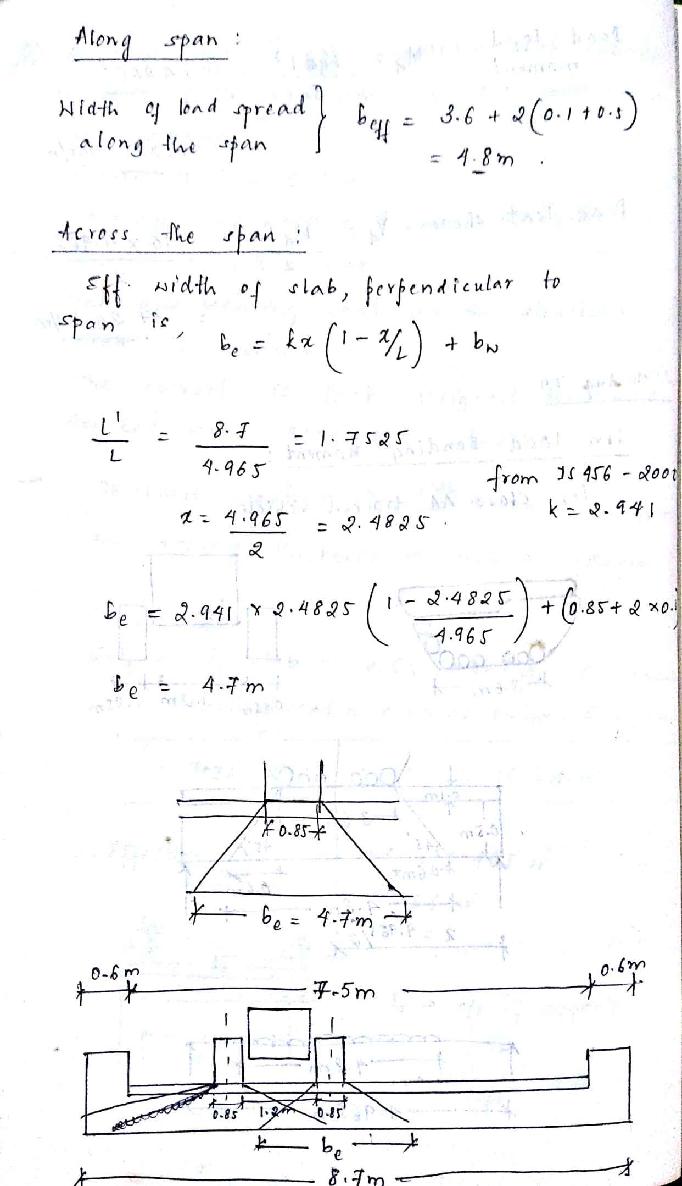 Along span :
Width of load spread along the span } beff = 3.6 + 2(0.1+0.5)
= 4.8m .
Across the span :
Eff. width of slab, perpendicular to
span is,
be = kx (1 - x/L) + bw
L'/L = 8.7/4.965 = 1.7525
from IS 456 - 200
x = 4.965/2 = 2.4825 .
k = 2.941
be = 2.941 x 2.4825 (1 - 2.4825/4.965) + (0.85 + 2 x0.
be = 4.7m
0.85
be = 4.7m
0.6m 7.5m 0.6m
0.85 1.2m 0.85
be
8.7m